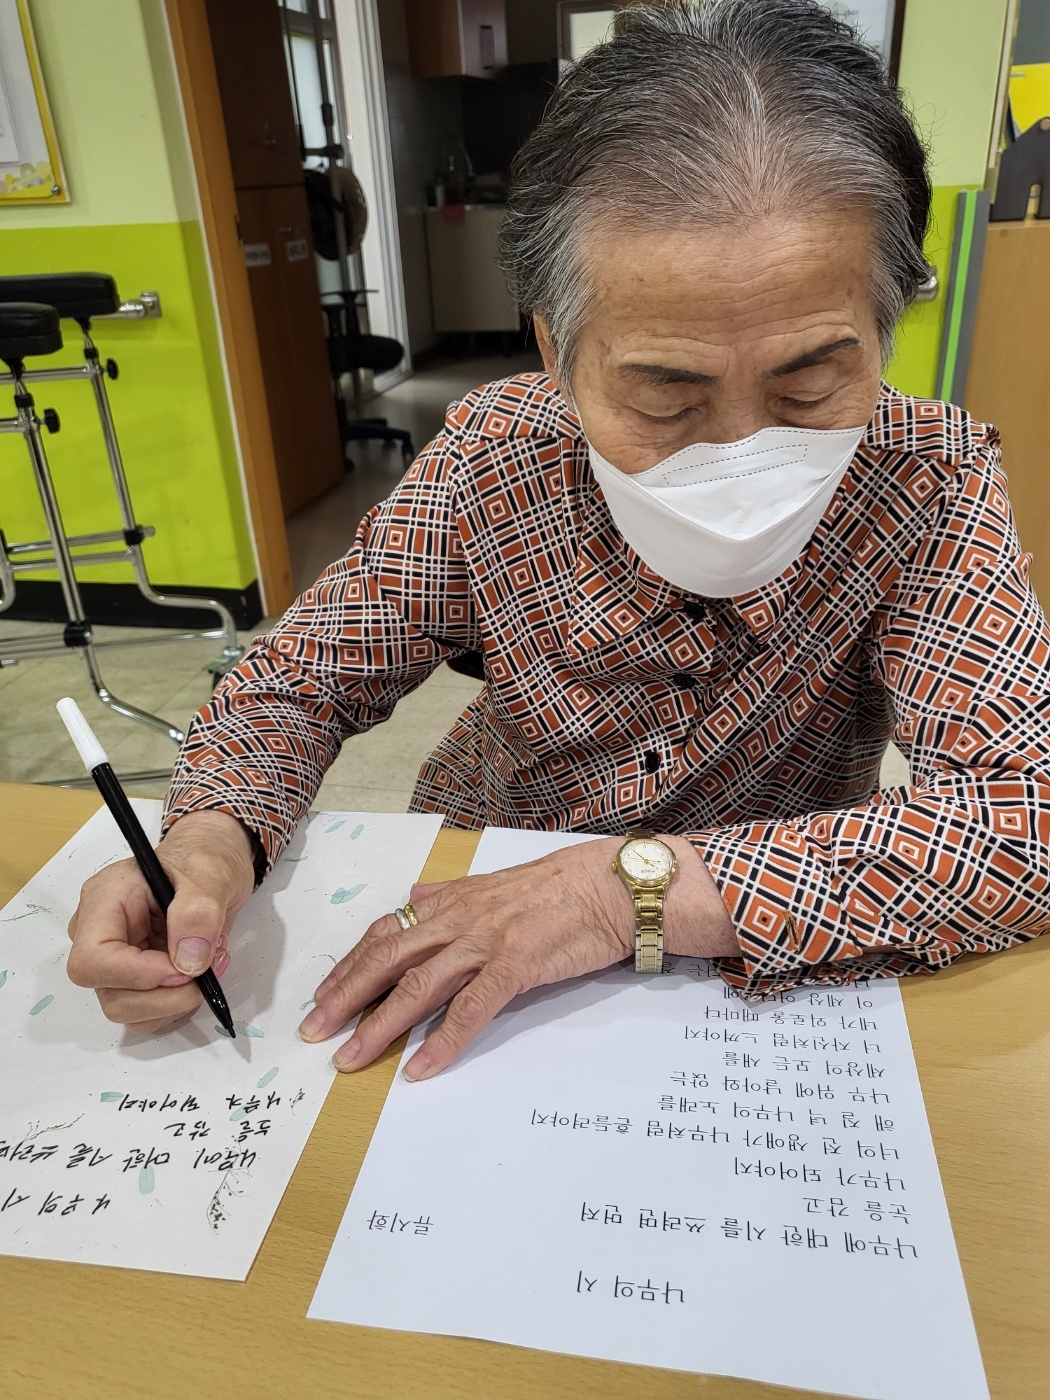 나무의 시
류시화
나무에 대한 시를 쓰려면 먼저
눈을 감고
나무가 되어야지
너의 전 생애가 나무처럼 흔들려야지
해 질 녘 나무의 노래를
나무 위에 날아와 앉는
세상의 모든 새를
너 자신처럼 느껴야지
네가 외로울 때마다
이 세상 어딘가에
나무의 시
나무에 대한 시를 쓰려면
눈을 감고
나무가 되어야지